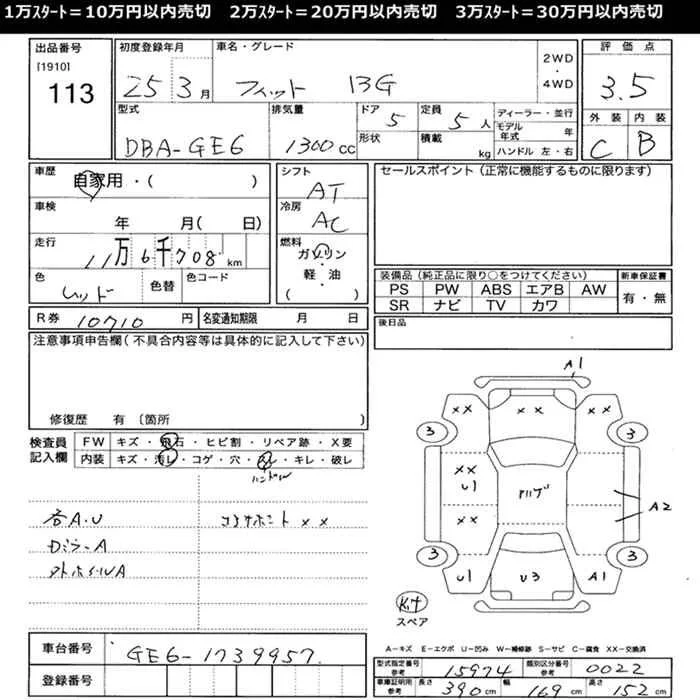 1万ｽﾀｰﾄ＝10万円以内売切　2万ｽﾀｰﾄ＝20万円以内売切　3万ｽﾀｰﾄ＝30万円以内売切
出品番号
[1910]
113
初度登録年月
25 3月
車名・グレード
フィット 13G
2WD
・
4WD
評価点
3.5
外装 内装
C B
型式
DBA-GE6
排気量
1300cc
ドア
5
定員
5人
形状
積載
kg
ディーラー・並行
モデル年式 年
ハンドル 左・右
車歴
自家用・( )
車検
年 月( 日)
走行
11万6千708km
色
レッド
色替
色コード
シフト
AT
冷房
AC
燃料
ガソリン
・
軽・油
( )
R券
10710円
名変通知期限 月 日
セールスポイント(正常に機能するものに限ります)
装備品(純正品に限り○をつけてください)
PS PW ABS エアB AW
SR ナビ TV カワ
新車保証書
有・無
後日品
注意事項申告欄(不具合内容等は具体的に記入して下さい)
修復歴 有〔箇所 〕
検査員
記入欄
FW キズ・飛石・ヒビ割・リペア跡・X要
内装 キズ・汚レ・コゲ・穴・スレ・キレ・破レ
ハンドル
各A.U
コアサポート ××
ドミラーA
外ホイールA
A1
×× ×× ××
3 3
××
U1
××
A2
3 3
U1 U3 A1
スペア
A－キズ E－エクボ U－凹み W－補修跡 S－サビ C－腐食 XX－交換済
車台番号
GE6-1739957
登録番号
型式指定番号
参考
15974
類別区分番号
参考
0022
車庫証明用
参考
長さ
390cm
幅
169cm
高さ
152cm